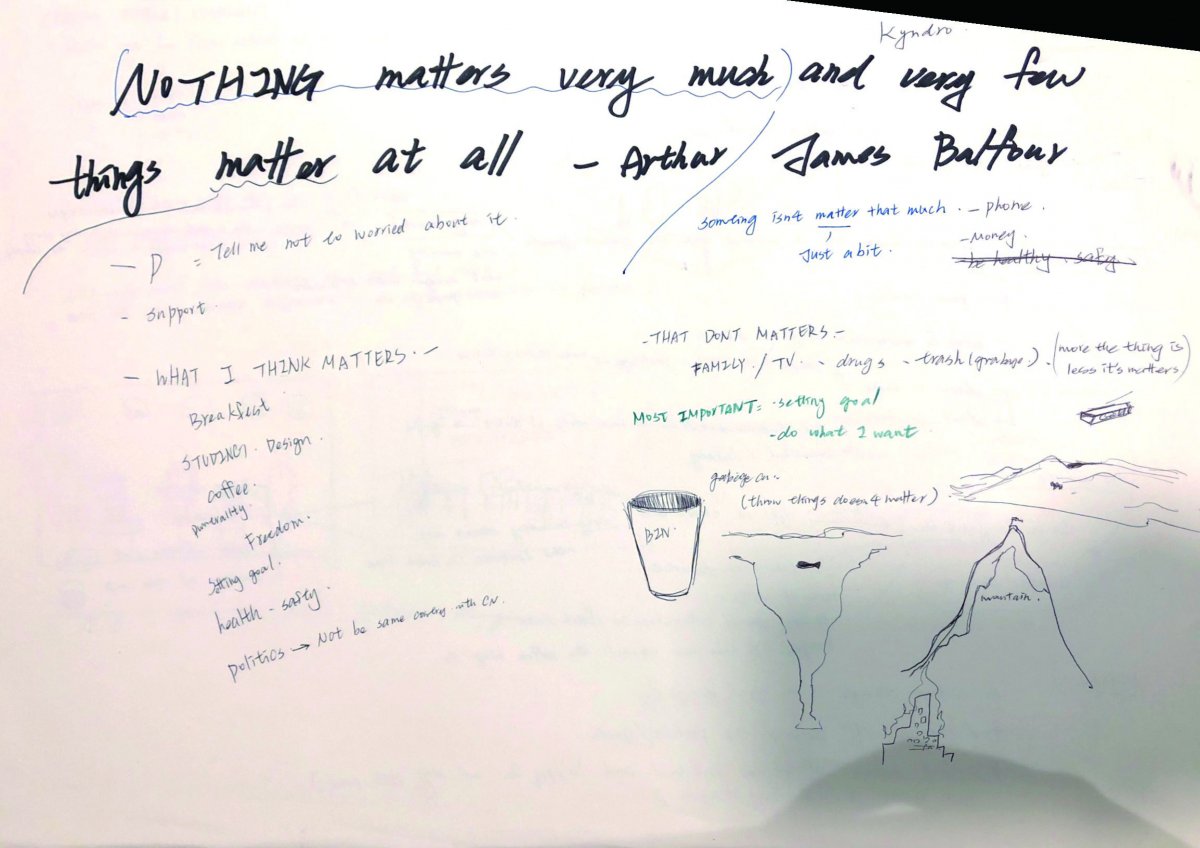 Kyndro.
(NOTHING matters very much) and very few
things matter at all - Arthar James Balfour
- P = Tell me not to worried about it.
- support.
- WHAT I THINK MATTERS. -
Breakfest
STUDING. Design.
coffee.
Freedom.
Setting goal.
health - safty.
politics → Not be same with CN.
someting isn4 matter that much.
Just a bit.
- phone.
- Money.
- be healthy. safty.
- THAT DONT MATTERS. -
FAMILY. / TV. - drugs - trash (grabage.) - (more the thing is
less it's matters)
MOST IMPORTANT = - setting goal
- do what I want
garbage can.
(throw things doesn4 matter).
BIN.
mountain.